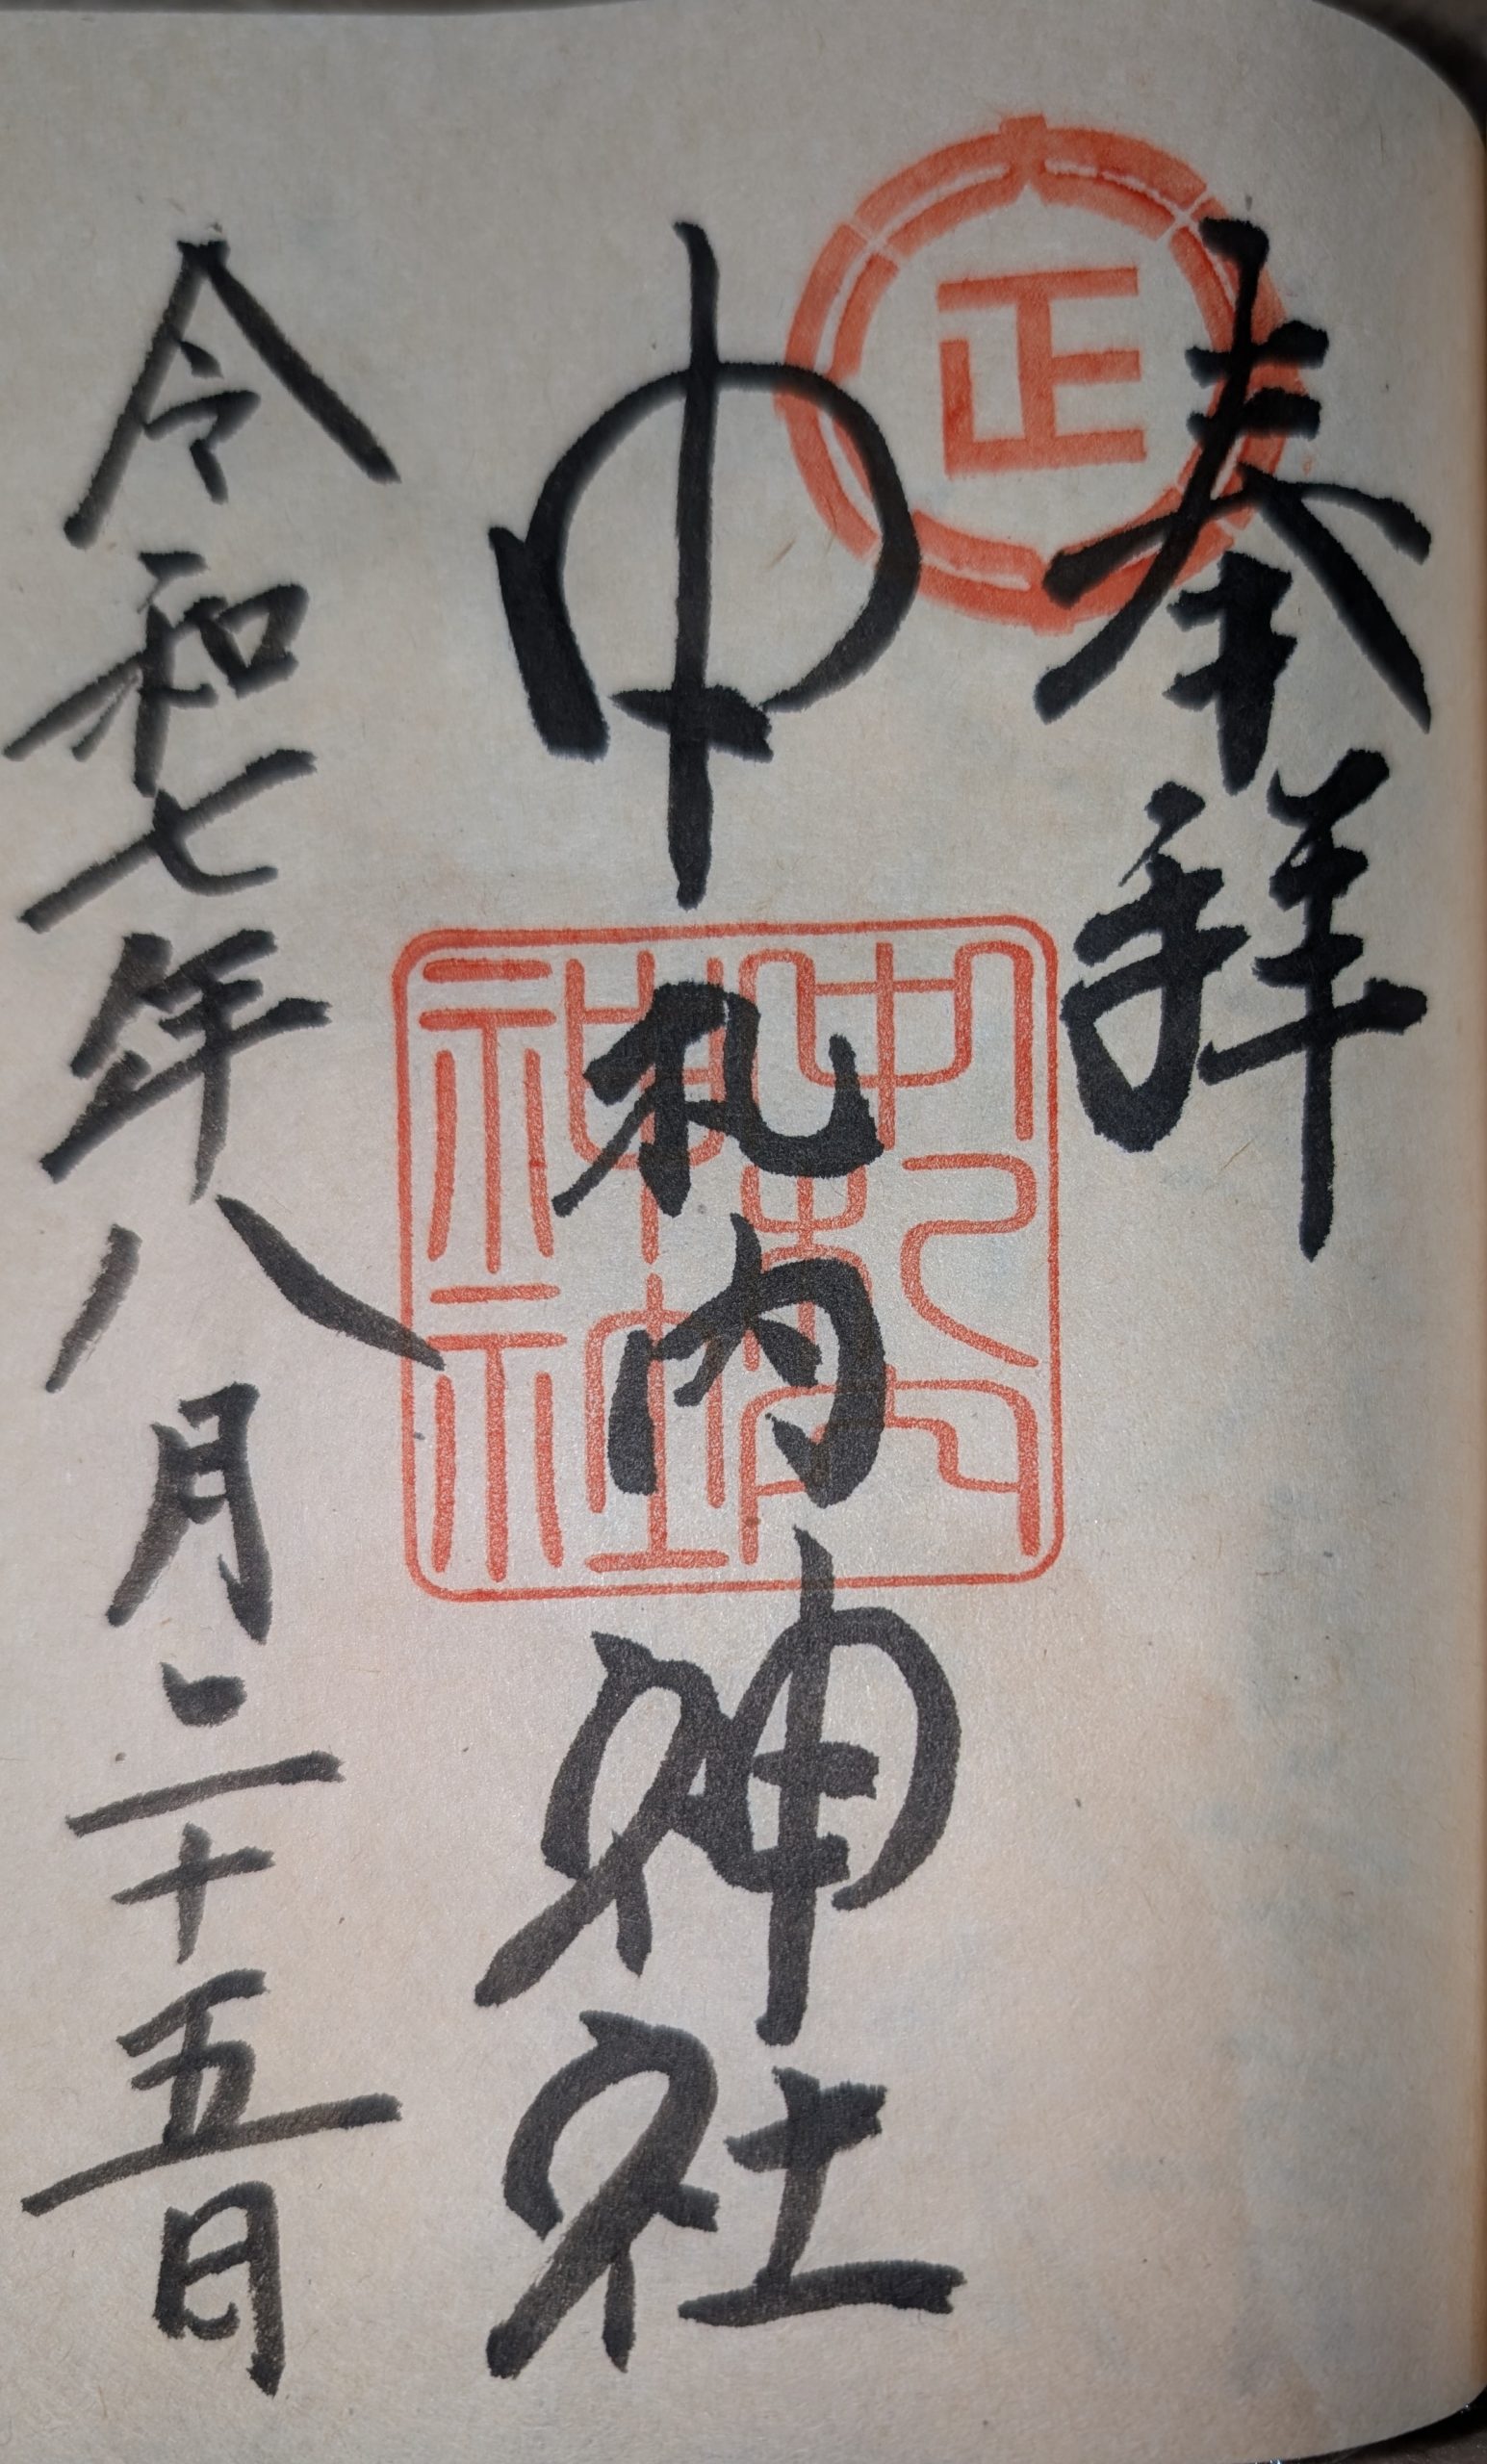 奉拝
正
中札内神社
中札内神社
令和七年八月二十五日